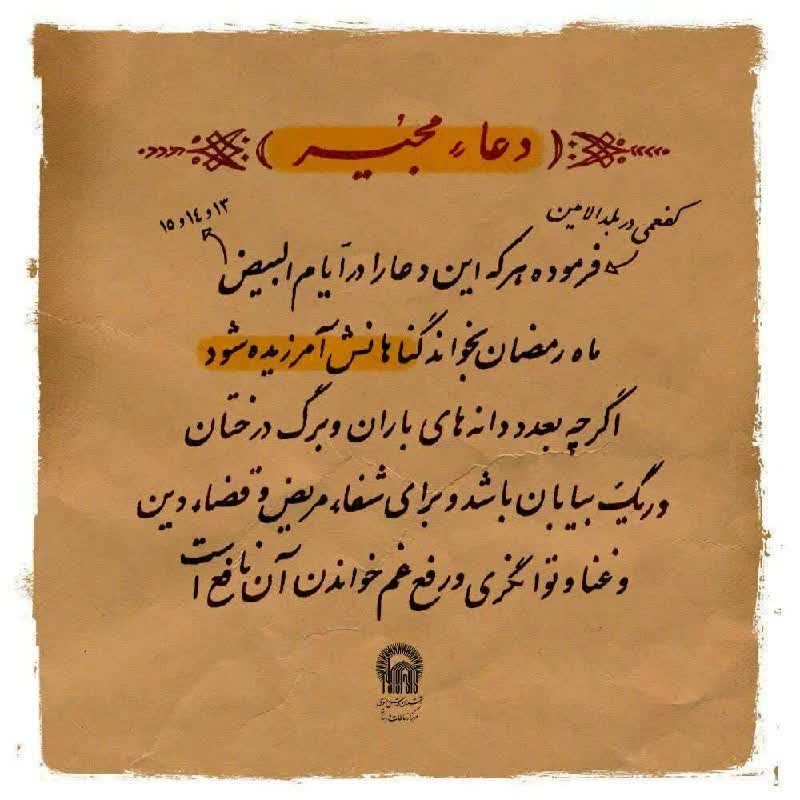 دعاء مجیر
کفعمی در بلدالامین
۱۳ و ۱٤ و ۱۵
فرموده هر که این دعا را در آیام البیض
ماه رمضان بخواند گناهانش آمرزیده شود
اگرچه بعدد دانه های باران و برگ درختان
و ریگ بیابان باشد و برای شفاء مریض و قضاء دین
و غنا و توانگری و رفع غم خواندن آن نافع است